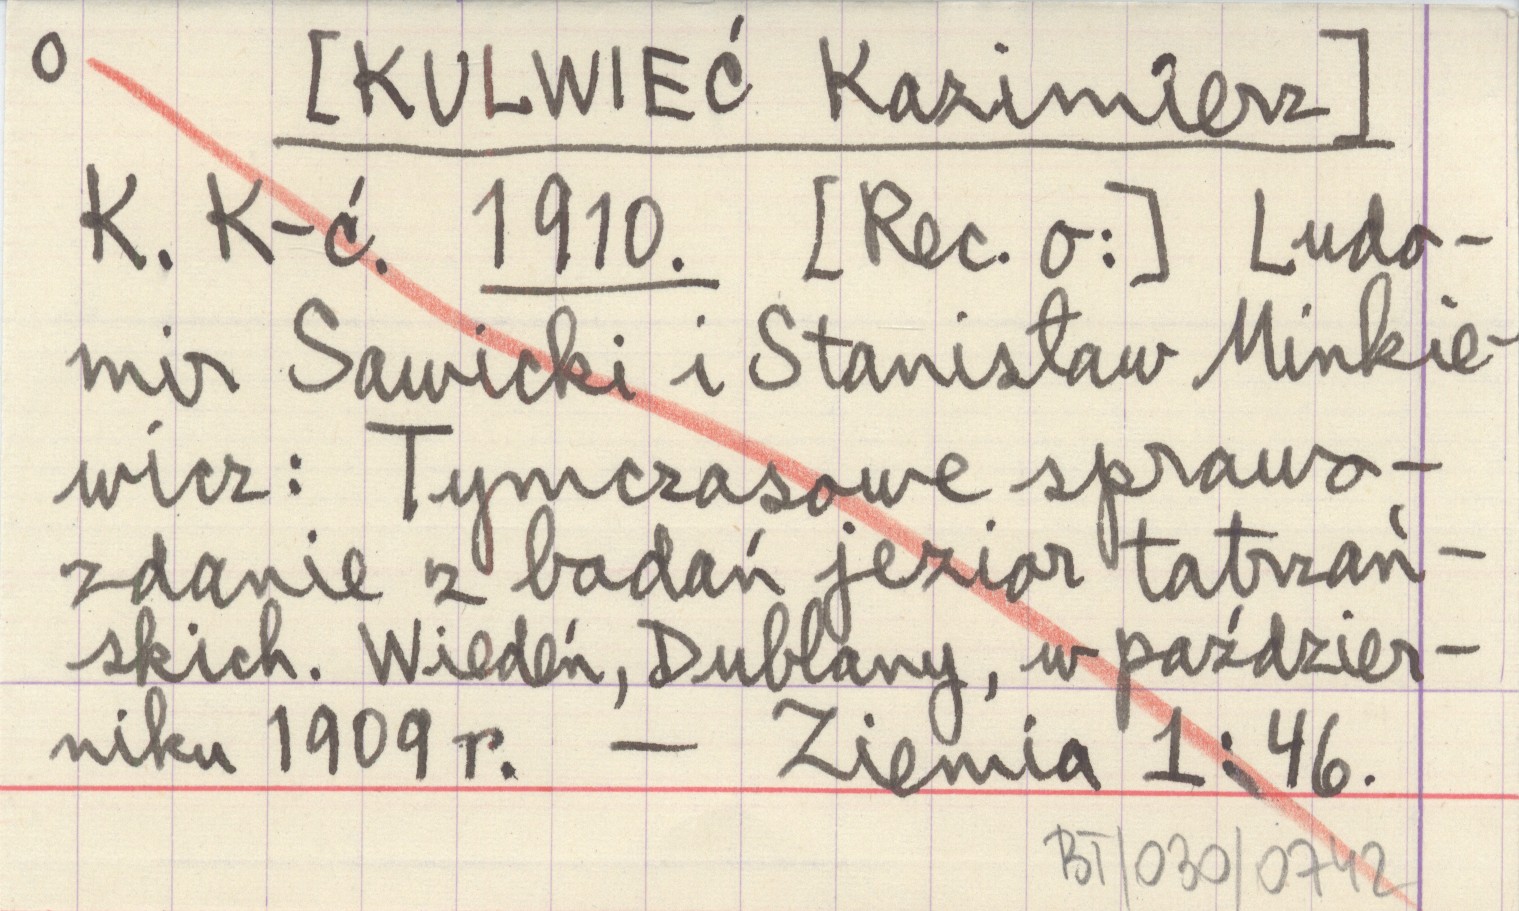 o [KULWIEĆ Kazimierz]
K. K-ć. 1910. [Rec. o:] Ludo-
mir Sawicki i Stanisław Minkie-
wicz: Tymczasowe sprawo-
zdanie z badań jezior tatrzań-
skich. Wiedeń, Dublany, w paździer-
niku 1909 r. — Ziemia 1: 46.
BT/030/0742